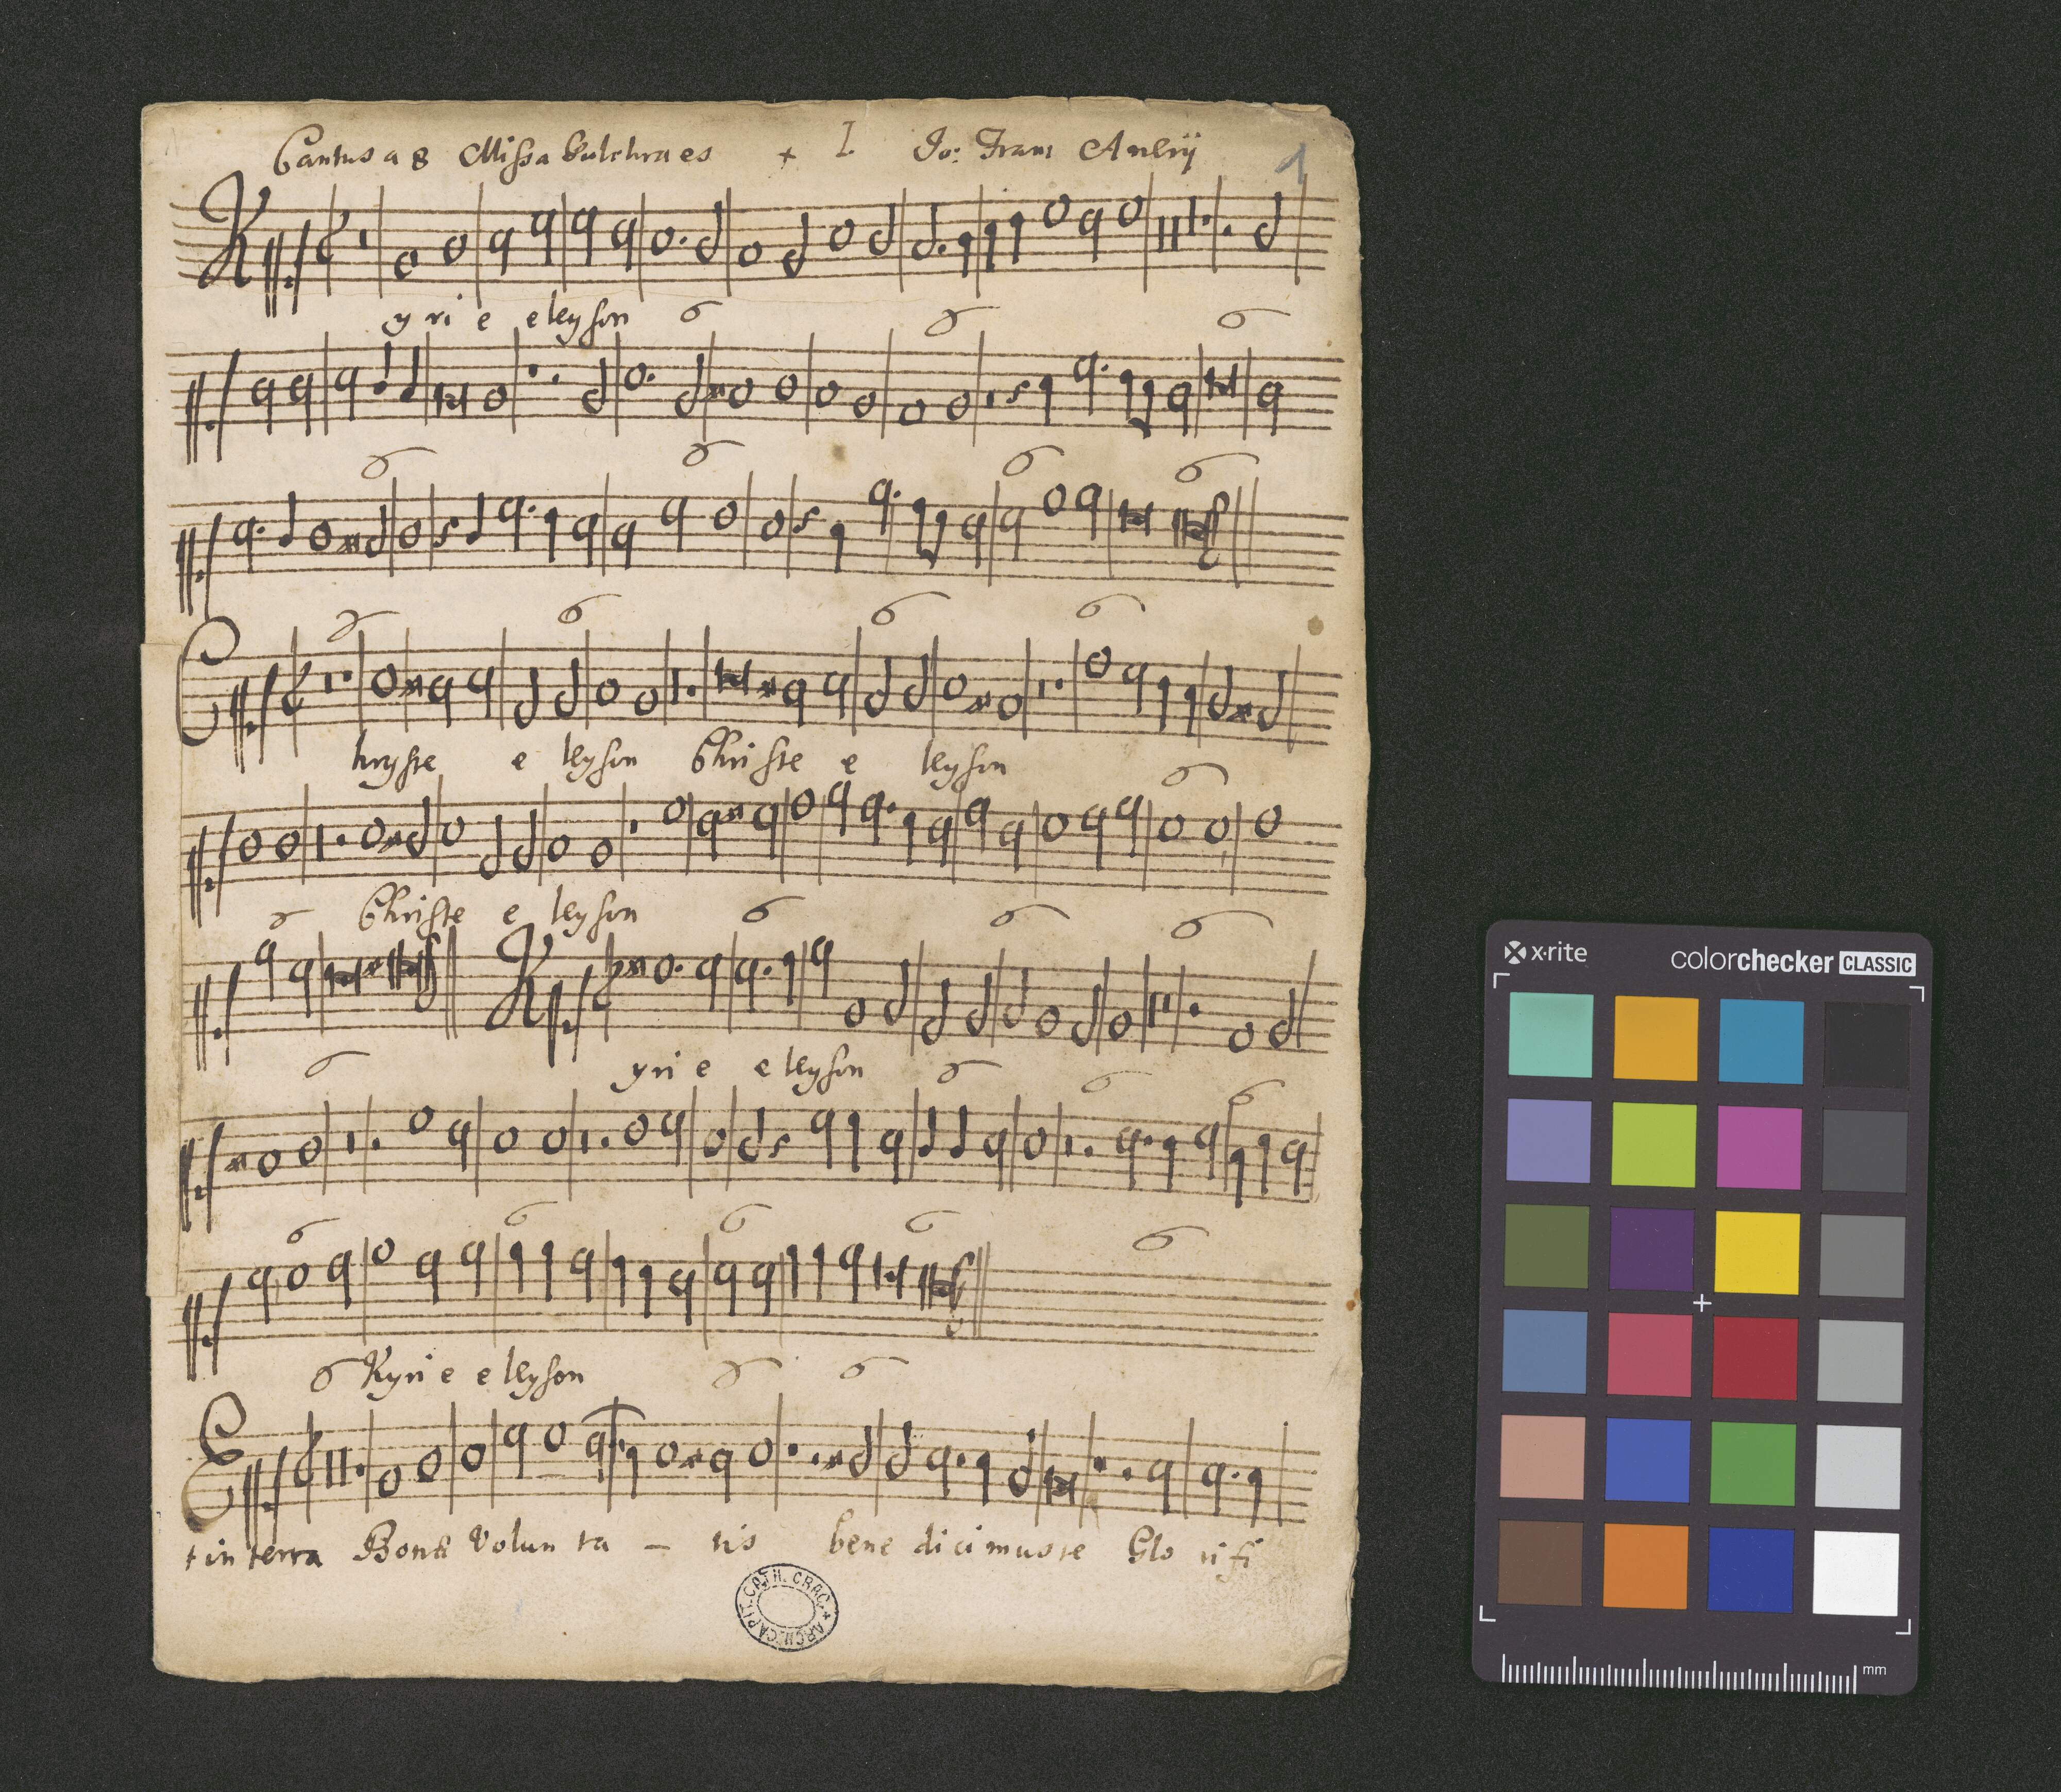 Cantus a 8 Missa Pulchra es + I. Jo: Franc Anerij 1
K yri e eleyson
C hryste e leyson Christe e leyson
Christe e leyson
K yri e e leyson
Kyri e e leyson
E t in terra Bonae Volun ta – tis bene dicimus te Glo rifi
ARCH. CAPIT. CATH. CRAC.
x·rite colorchecker CLASSIC
mm